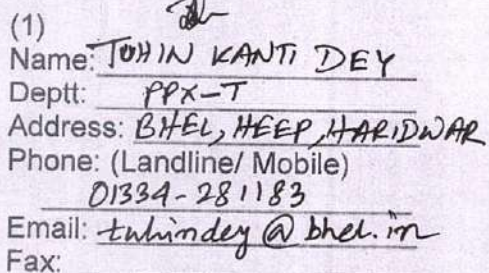 (1)
Name: TUHIN KANTI DEY
Deptt: PPX-T
Address: BHEL, HEEP, HARIDWAR
Phone: (Landline/ Mobile)
01334-281183
Email: tuhindey@bhel.in
Fax: